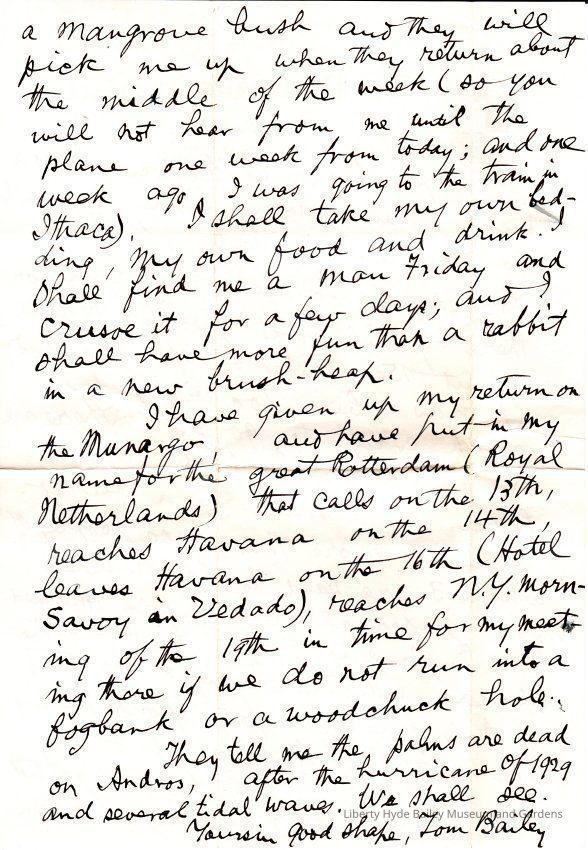 a mangrove bush and they will
pick me up when they return about
the middle of the week (so you
will not hear from me until the
plane one week from today; and one
week ago I was going to the train in
Ithaca). I shall take my own bed-
ding, my own food and drink. I
shall find me a man Friday and
crusoe it for a few days; and I
shall have more fun than a rabbit
in a new brush-heap.
I have given up my return on
the Munargo, and have put in my
name for the great Rotterdam (Royal
Netherlands) that calls on the 13th,
reaches Havana on the 14th,
leaves Havana on the 16th (Hotel
Savoy in Vedado), reaches N.Y. morn-
ing of the 19th in time for my meet-
ing there if we do not run into a
fogbank or a woodchuck hole.
They tell me the palms are dead
on Andros, after the hurricane of 1929
and several tidal waves. We shall see.
Yours in good shape, Tom Bailey
Liberty Hyde Bailey Museum and Gardens